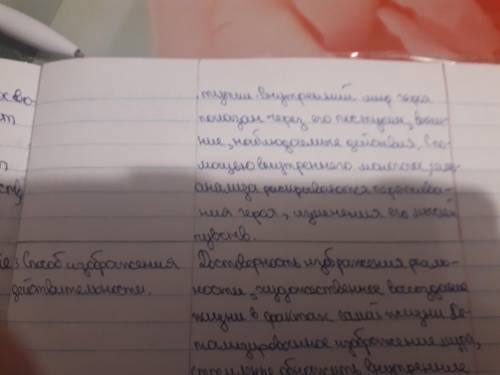 внутренний мир героя
показан через его поступки, внеш-
ние, наблюдаемые действия. С по-
мощью внутреннего монолога,
анализа раскрываются пережива-
ния героя, изменения его мыслей
чувств.
Способ изображения
действительности.
Достоверность изображения реаль-
ности, художественное воссоздание
жизни в фактах самой жизни. Де-
тализированное изображение мира,
стремление обнажить внутренние